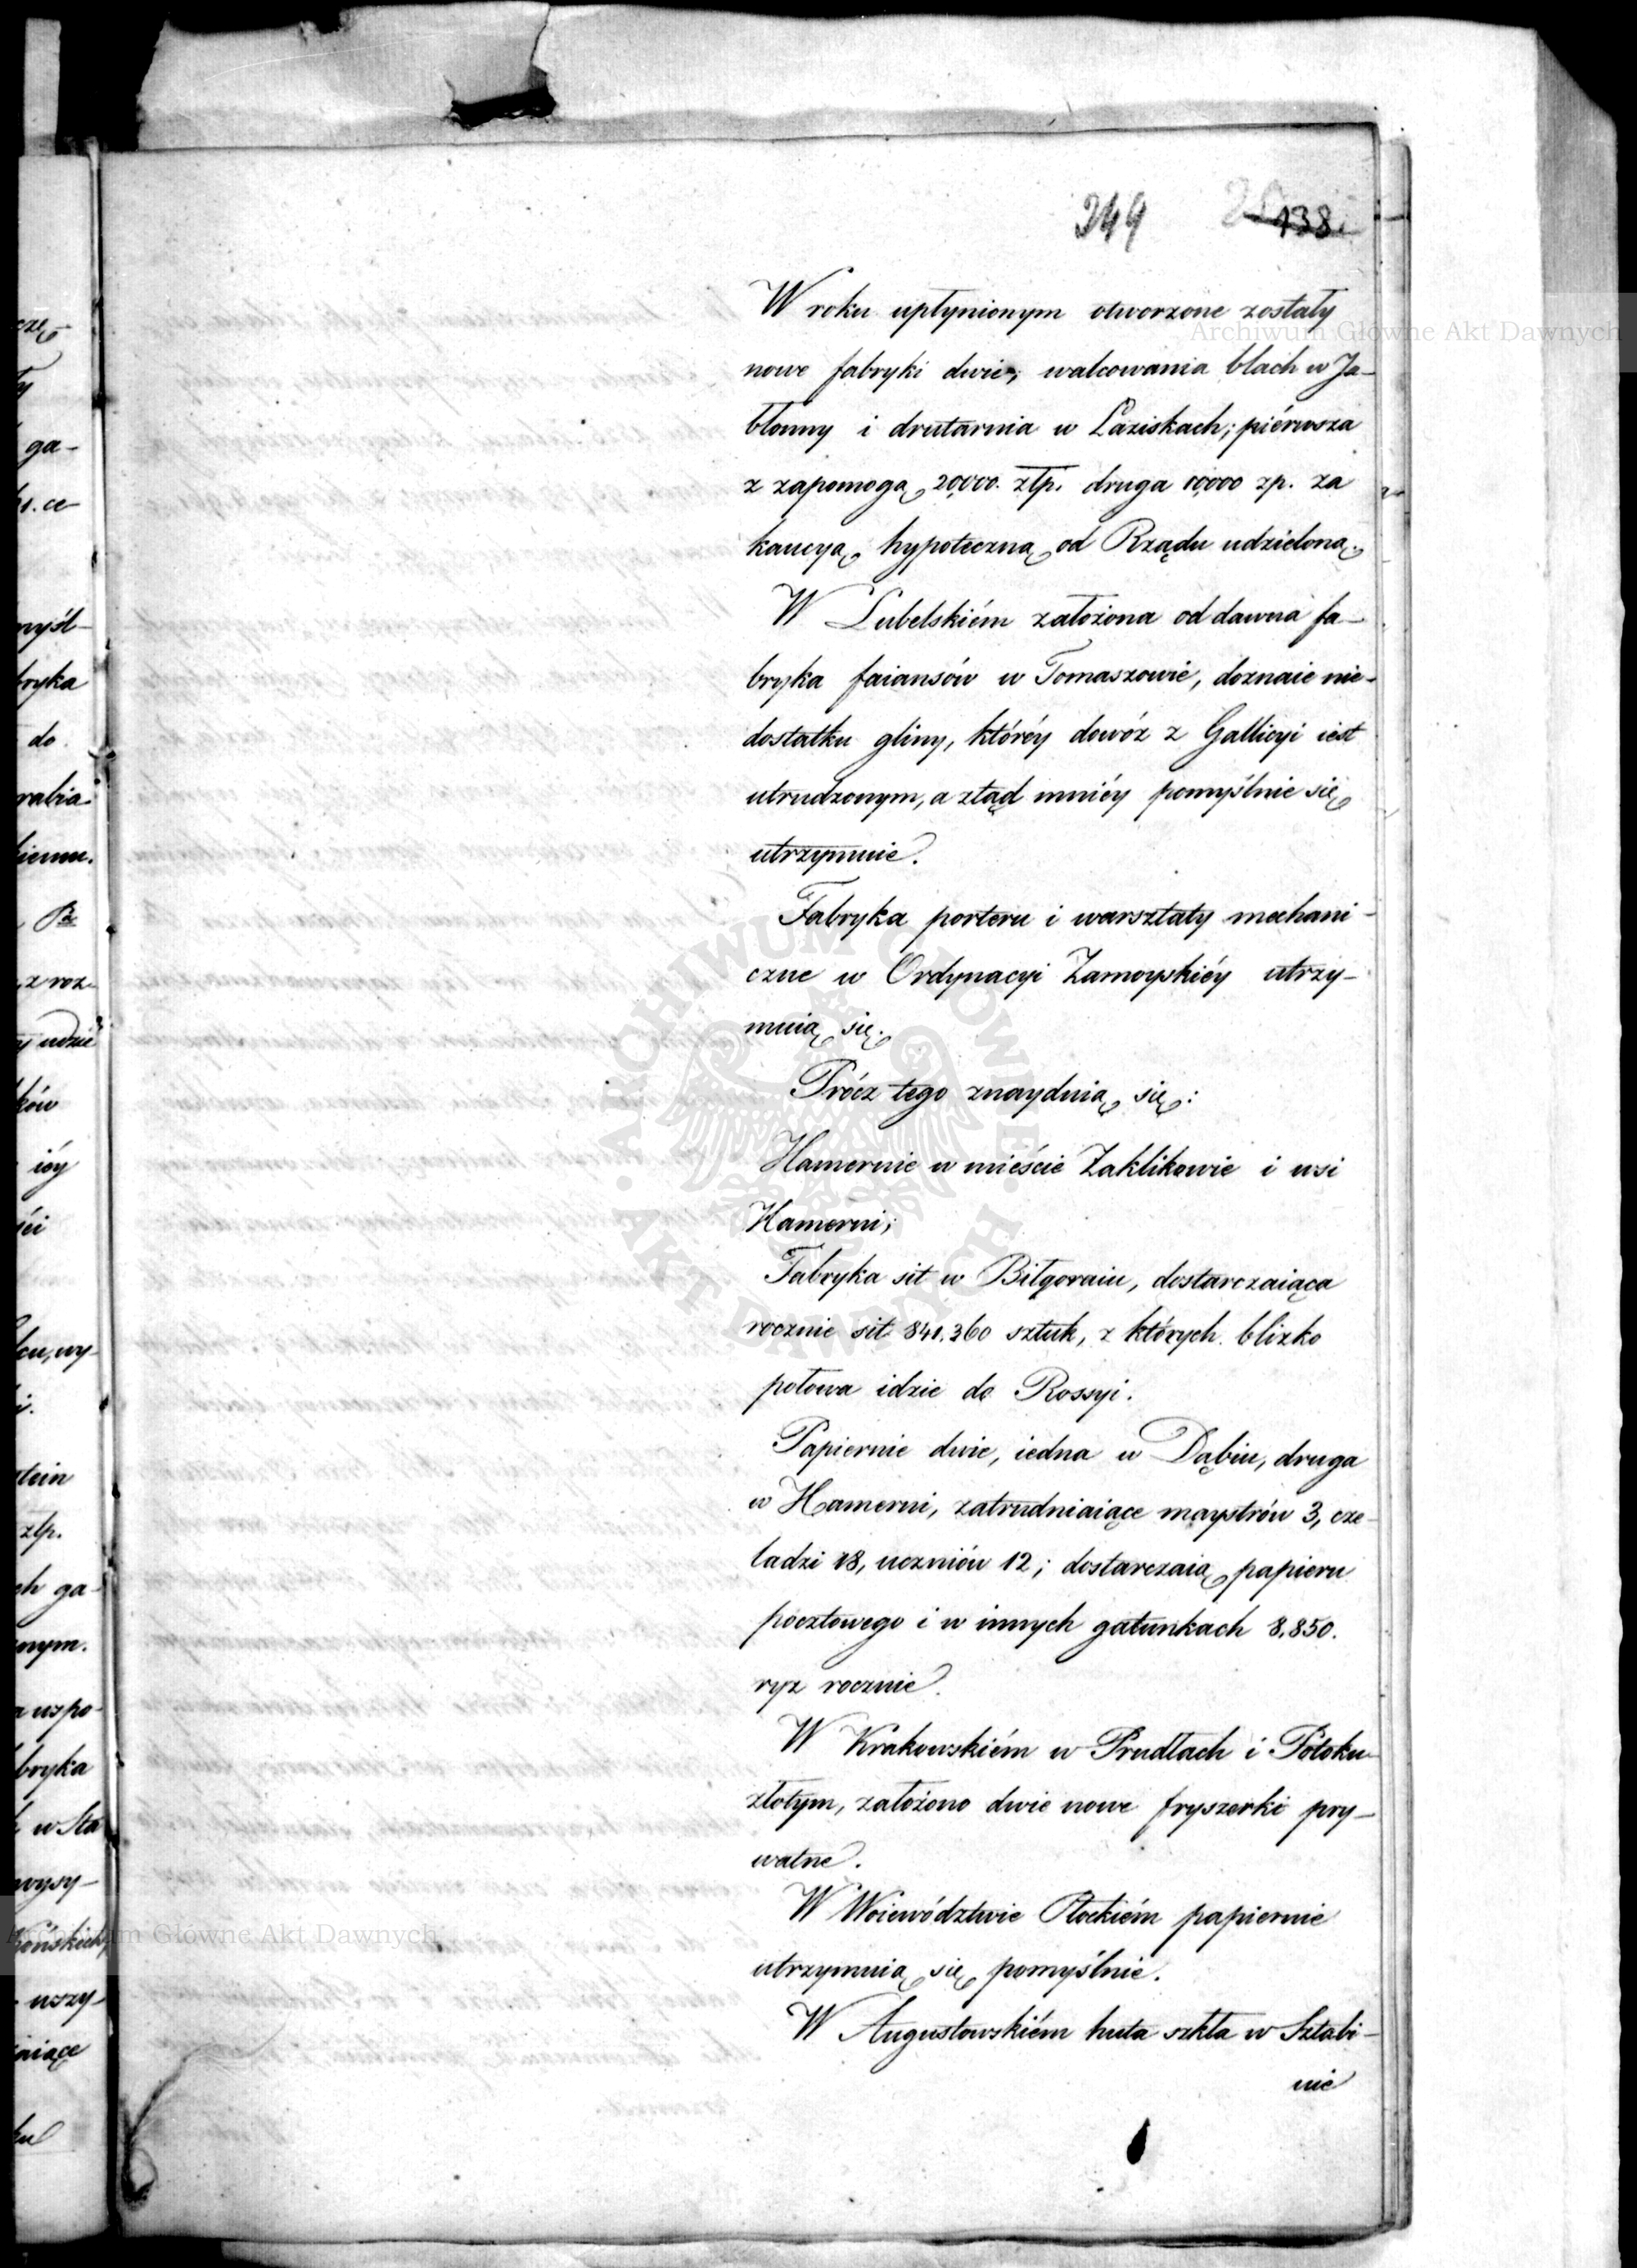 249 138
W roku upłynionym otworzone zostały
nowe fabryki dwie; walcowania blach w Ja-
błonny i drutarnia w Łaziskach; piérwsza
z zapomogą 20,000. złp. druga 10,000 zp. za
kaucyą hypoteczną od Rządu udzieloną.
W Lubelskiém założona od dawna fa-
bryka faiansów w Tomaszowie, doznaie nie-
dostatku gliny, któréy dowóz z Gallicyi iest
utrudzonym, a ztąd mniéy pomyślnie się
utrzymuie.
Fabryka porteru i warsztaty mechani-
czne w Ordynacyi Zamoyskiéy utrzy-
muią się.
Prócz tego znayduią się:
Hamernie w mieście Zaklikowie i wsi
Hamerni;
Fabryka sit w Biłgoraiu, dostarczaiąca
rocznie sit 841.360 sztuk, z których blizko
połowa idzie do Rossyi.
Papiernie dwie, iedna w Dąbiu, druga
w Hamerni, zatrudniaiące maystrów 3, cze-
ladzi 18, uczniów 12; dostarczaią papieru
pocztowego i w innych gatunkach 8.850.
ryz rocznie.
W Krakowskiém w Prudłach i Potoku
złotym, założono dwie nowe fryszerki pry-
watne.
W Woiewództwie Płockiém papiernie
utrzymuią się pomyślnie.
W Augustowskiém huta szkła w Sztabi-
nie
Archiwum Główne Akt Dawnych
Archiwum Główne Akt Dawnych
ARCHIWUM GŁÓWNE AKT DAWNYCH